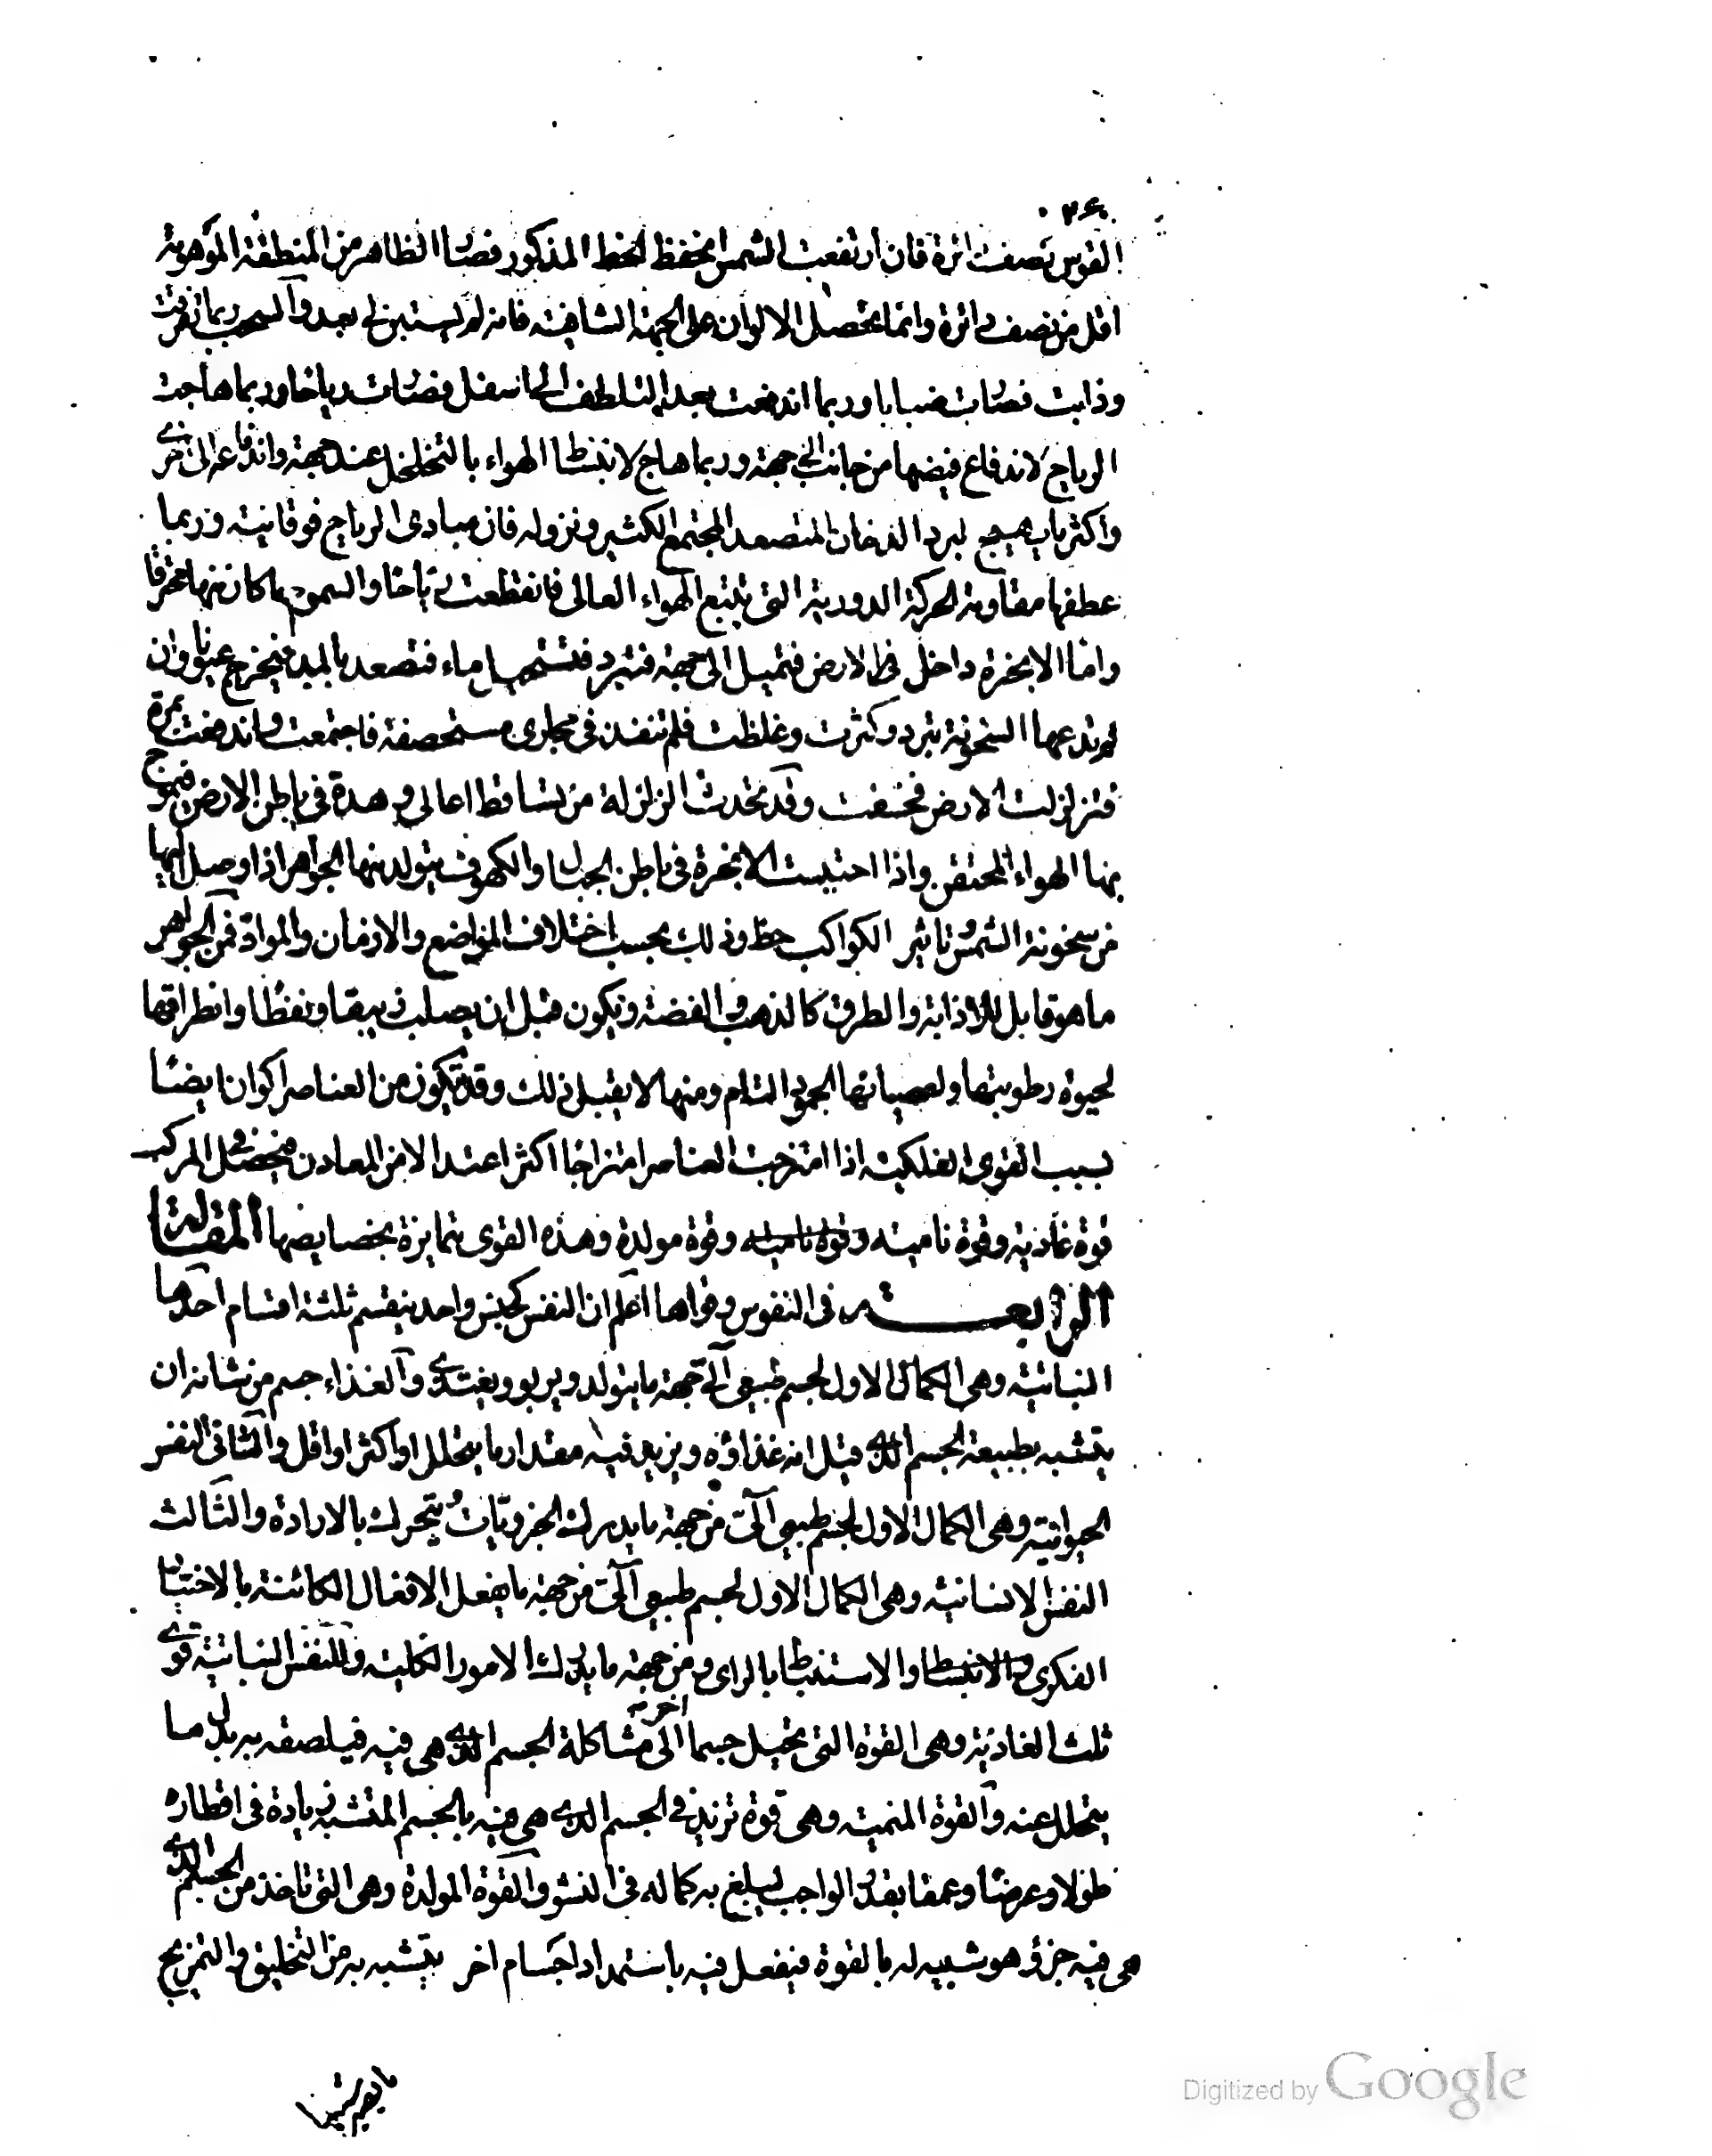 القوس نصف دائرة فان ارتفعت الشمس انخفظ الخط المذكور فصار الظاهر من المنطقة الموهومة
اقل من نصف دائرة وانما يحصل الالوان على الجهة الشافية فانه لم يستبن لي بعد والسحب ربما تفرقت
وذابت فصارت ضبابا وربما اندفعت بعد التلطف الى اسفل فصارت رياحا وربما هاجت
الرياح لاندفاع فيضها من جانب الى جهة وربما هاج لانبساط الهواء بالتخلخل عند جهة واندفاعه الى اخرى
واكثر ما يهيج لبرد الدخان المتصعد المجتمع الكثير ونزوله فان مبادى الرياح فوقانية وربما
عطفها مقاومة الحركة الدورية التى يتبع الهواء العالى فانعطفت رياحا والسموم ما كان منها محترقا
واما الابخرة داخل الارض فتميل الى جهة فتبرد فتستحيل ماء فتصعد بالمد فيخرج عيونا وان
لم تدعها السخونة تبرد وكثرت وغلظت فلم تنفذ فى مجارى مستحصفة فاجتمعت واندفعت بمرة
فتزلزلت الارض فخسفت وقد تحدث الزلزلة من تساقط اعالى وهدة فى باطن الارض فيموج
بها الهواء المحتقن واذا احتبست الابخرة فى باطن الجبال والكهوف يتولد منها الجواهر اذا وصل اليها
من سخونة الشمس وتاثير الكواكب حظ وذلك بحسب اختلاف المواضع والازمان والمواد فمن الجواهر
ما هو قابل للاذابة والطرق كالذهب والفضة ويكون قبل ان يصلب زيبقا ونفطا وانطراقها
لحيوة رطوبتها ولعصيانها الجمود التام ومنها لا يقبل ذلك وقد تتكون من العناصر اكوان ايضا
بسبب القوى الفلكية اذا امتزجت العناصر امتزاجا اكثر اعتدالا من المعادن فيحصل فى المركب
قوة غاذية وقوة نامية وقوة نامية وقوة مولدة وهذه القوى متمايزة بخصايصها المقالة
الرابعة فى النفوس وقواها اعلم ان النفس كجنس واحد ينقسم ثلثة اقسام احدها
النباتية وهى الكمال الاول لجسم طبيعى آلى من جهة ما يتولد ويربو ويغتذى والغذاء جسم من شانه ان
يتشبه بطبيعة الجسم الذى قيل انه غذاؤه ويزيد فيه مقدار ما يتحلل او اكثر او اقل والثانى النفس
الحيوانية وهى الكمال الاول لجسم طبيعى آلى من جهة ما يدرك الجزويات ويتحرك بالارادة والثالث
النفس الانسانية وهى الكمال الاول لجسم طبيعى آلى من جهة ما يفعل الافعال الكائنة بالاختيار
الفكرى والانبساط والاستنباط بالراى ومن جهة ما يدرك الامور الكلية وللنفس النباتية قوى
ثلث الغاذية وهى القوة التى تحيل جسما اخر الى مشاكلة الجسم الذى هى فيه فيلصقه به بدل ما
يتحلل عنه والقوة المنمية وهى قوة تزيد فى الجسم الذى هى فيه بالجسم المتشبه زيادة فى اقطاره
طولا وعرضا وعمقا بقدر الواجب ليبلغ به كماله فى النشو والقوة المولدة وهى التى تاخذ من الجسم الذى
هى فيه جزؤ هو شبيه له بالقوة فيفعل فيه باستمداد اجسام اخر يتشبه به من التخليق والتمزيج